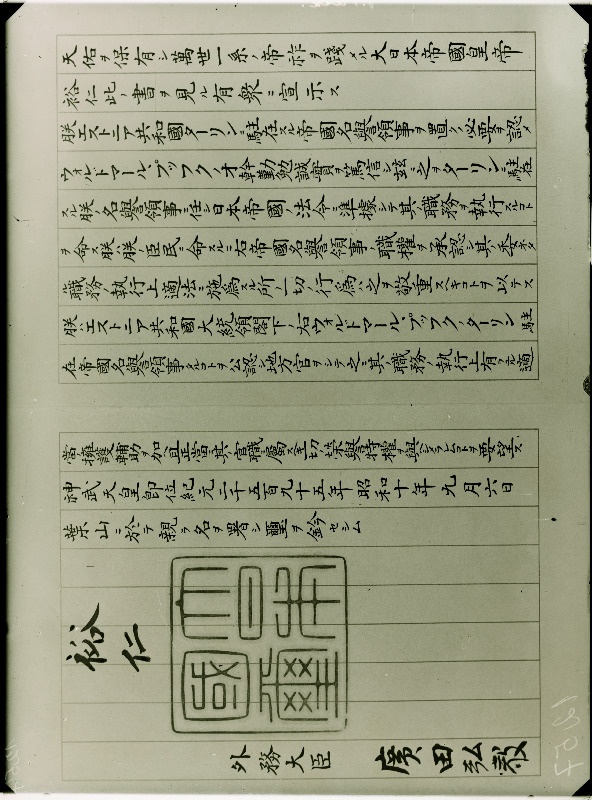 天佑ヲ保有シ萬世一系ノ帝祚ヲ踐メル大日本帝國皇帝
裕仁此ノ書ヲ見ル有衆ニ宣示ス
朕エストニア共和國ターリンニ駐在スル帝國名譽領事ヲ置クノ必要ヲ認メ
ウォルドマール、プックノオ幹勤勉誠實ヲ篤信シ茲ニ之ヲターリンニ駐在
スル朕ノ名譽領事ニ任シ日本帝國ノ法令ニ準據シテ其ノ職務ヲ執行スルコト
ヲ命ス朕ハ朕ノ臣民ニ命スルニ右帝國名譽領事ノ職權ヲ承認シ其ノ委ネタ
ル職務ノ執行上適法ニ施爲スル所ノ一切ノ行爲ハ之ヲ敬重スヘキコトヲ以テス
朕ハエストニア共和國大統領閣下ノ右ウォルドマール、プックノターリン駐
在帝國名譽領事タルコトヲ公認シ地方官ヲシテ之ニ其ノ職務ノ執行上有ユル適
當擁護輔助ヲ加ヘ且正當ニ其ノ官職ニ屬スル一切ノ榮譽特權ヲ與ヘシメラレムコトヲ要望ス
神武天皇即位紀元二千五百九十五年昭和十年九月六日
葉山ニ於テ親ラ名ヲ署シ璽ヲ鈐セシム
裕仁
大日本
國璽
外務大臣 廣田弘毅
1257